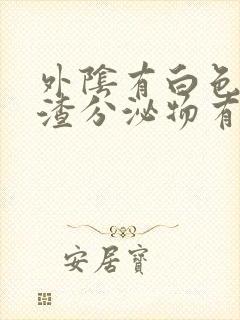 外陰有白色
渣分泌物有
安居寶